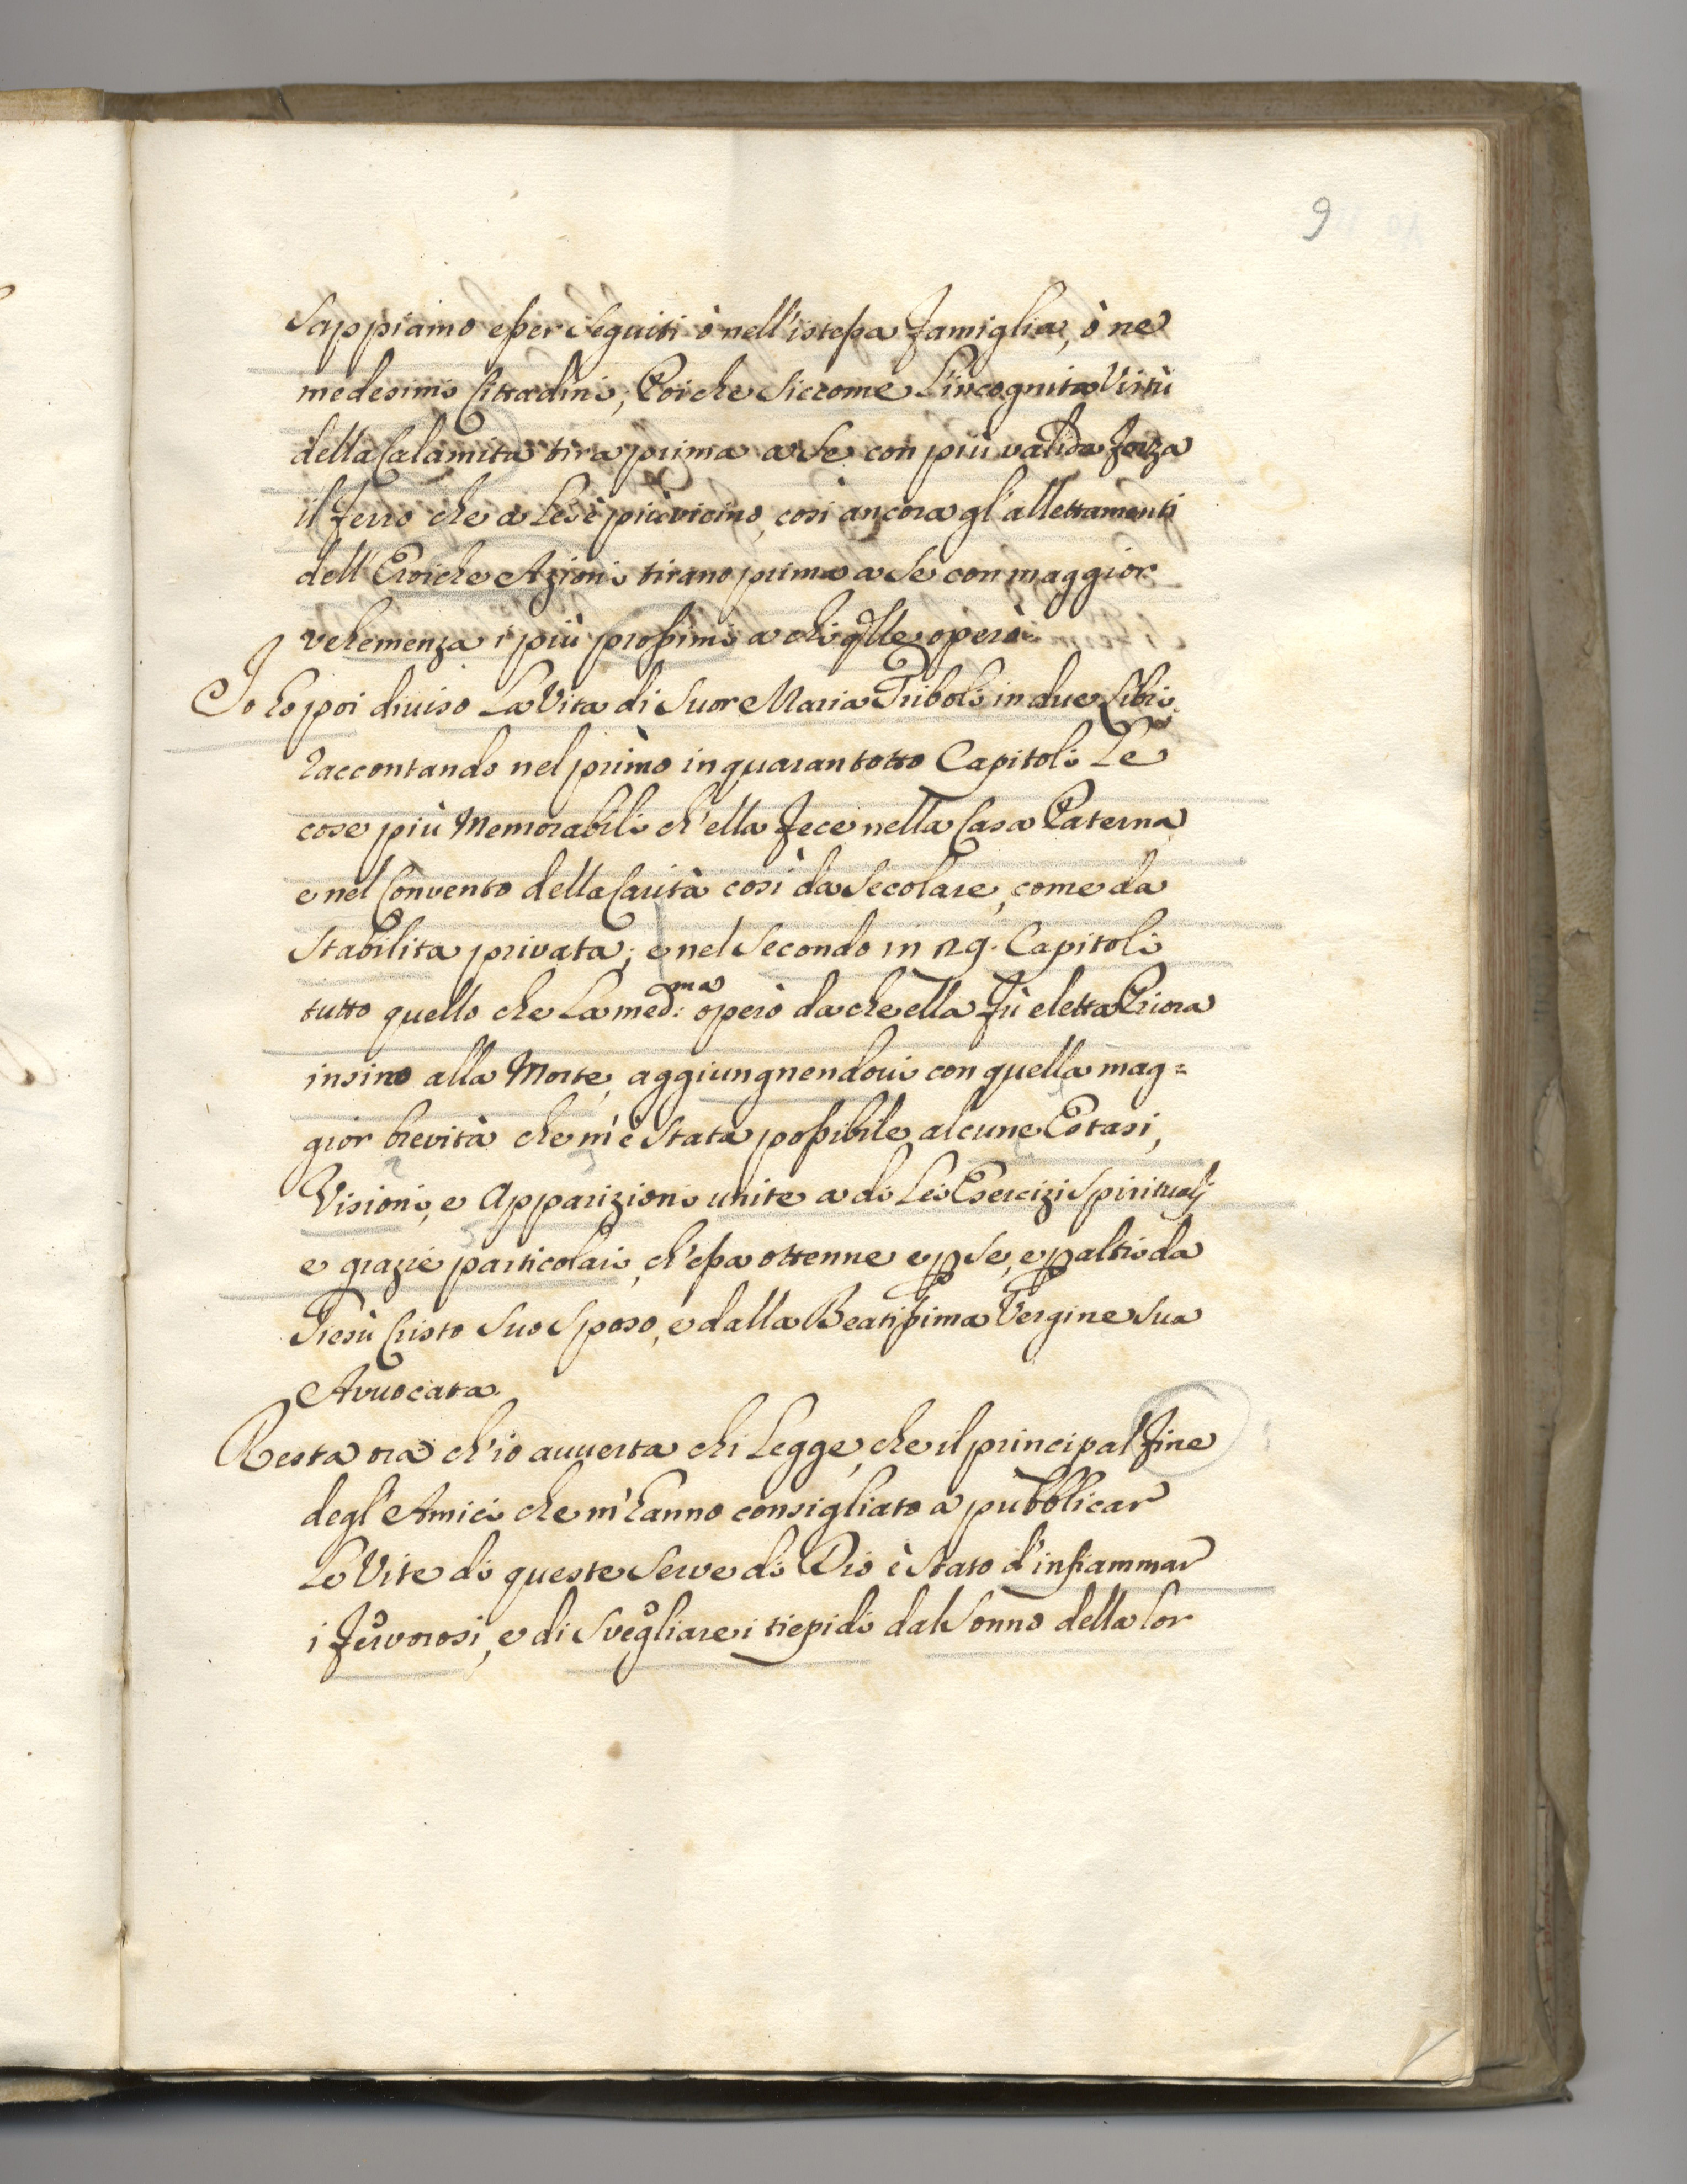 9
Sappiamo esser Seguiti ò nell'istessa famiglia, ò ne
medesimi Cittadini; Poiche Siccome L'incognita Virtù
della Calamita tira prima a Se con più valida forza
il ferro che a Lei è più vicino, così ancora gl'allettamenti
dell'Eroiche Azioni tirano prima a Se con maggior
vehemenza i più prossimi a chi qlle operò.
Io ho poi diviso La Vita di Suor Maria Triboli in due Libri
raccontando nel primo in quarantotto Capitoli Le
cose più Memorabili ch'ella fece nella Casa Paterna
e nel Convento della Carità così da Secolare, come da
Stabilita privata; e nel Secondo in 29. Capitoli
tutto quello che La med:ma operò da che ella fù eletta Priora
insino alla Morte, aggiungnendovi con quella mag=
gior brevità che m'è Stata possibile alcune Estasi,
Visioni, e Apparizioni unite a di Lei Esercizi Spirituali
e grazie particolari, ch'essa ottenne e p Se, e p altri da
Giesù Cristo Suo Sposo, e dalla Beatissima Vergine Sua
Avvocata.
Resta ora ch'io avverta chi Legge, che il principal fine
degl'Amici che m'hanno consigliato a pubblicar
Le Vite di queste Serve di Dio è Stato d'infiammar
i fervorosi, e di Svegliare i tiepidi dal Sonno della lor